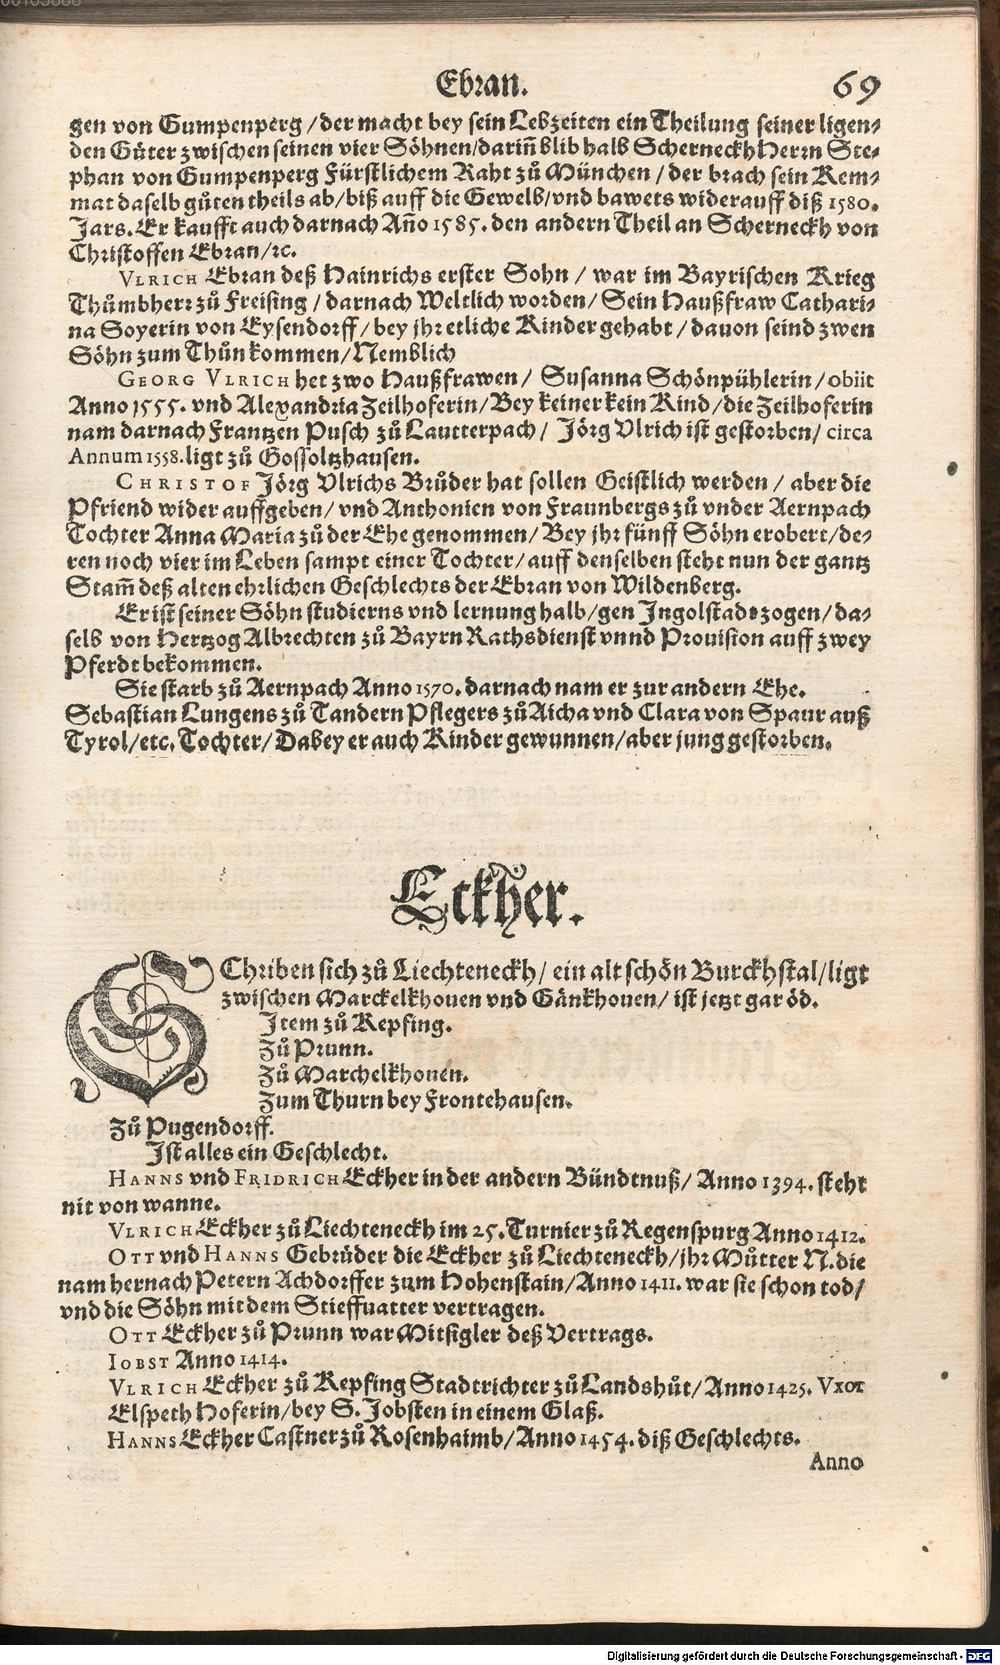 Ebran. 69
gen von Gumpenperg / der macht bey sein Lebzeiten ein Theilung seiner ligen⸗
den Gůter zwischen seinen vier Söhnen/darin̄ blib halb Scherneckh Herrn Ste⸗
phan von Gumpenperg Fürstlichem Raht zů München / der brach sein Kem⸗
mat daselb gůten theils ab/biß auff die Gewelb/vnd bawets widerauff diß 1580.
Jars. Er kaufft auch darnach Año 1585. den andern Theil an Scherneckh von
Christoffen Ebran/ꝛc.
VLRICH Ebran deß Hainrichs erster Sohn / war im Bayrischen Krieg
Thůmbherr zů Freising / darnach Weltlich worden / Sein Haußfraw Cathari⸗
na Soyerin von Eysendorff / bey jhr etliche Kinder gehabt / dauon seind zwen
Söhn zum Thůn kommen/Nemblich
GEORG VLRICH het zwo Haußfrawen / Susanna Schönpühlerin / obiit
Anno 1555. vnd Alexandria Zeilhoferin/Bey keiner kein Kind /die Zeilhoferin
nam darnach Frantzen Pusch zů Lautterpach / Jörg Vlrich ist gestorben / circa
Annum 1558. ligt zů Gossoltzhausen.
CHRISTOF Jörg Vlrichs Brůder hat sollen Geistlich werden / aber die
Pfriend wider auffgeben / vnd Anthonien von Fraunbergs zů vnder Aernpach
Tochter Anna Maria zů der Ehe genommen / Bey jhr fünff Söhn erobert /de⸗
ren noch vier im Leben sampt einer Tochter / auff denselben steht nun der gantz
Stam̄ deß alten ehrlichen Geschlechts der Ebran von Wildenberg.
Er ist seiner Söhn studierns vnd lernung halb /gen Ingolstadt zogen / da⸗
selb von Hertzog Albrechten zů Bayrn Rathsdienst vnnd Prouision auff zwey
Pferdt bekommen.
Sie starb zů Aernpach Anno 1570. darnach nam er zur andern Ehe.
Sebastian Lungens zů Tandern Pflegers zů Aicha vnd Clara von Spaur auß
Tyrol/etc. Tochter / Dabey er auch Kinder gewunnen /aber jung gestorben.
Eckher.
SChriben sich zů Liechteneckh / ein alt schön Burckhstal/ligt
zwischen Marckelkhouen vnd Gänkhouen / ist jetzt gar öd.
Item zů Kepfing.
Zů Prunn.
Zů Marchelkhouen.
Zum Thurn bey Frontehausen.
Zů Pugendorff.
Ist alles ein Geschlecht.
HANNS vnd FRIDRICH Eckher in der andern Bündtnuß / Anno 1394. steht
nit von wanne.
VLRICH Eckher zů Liechteneckh im 25. Turnier zů Regenspurg Anno 1412.
OTT vnd HANNS Gebrüder die Eckher zů Liechteneckh / jhr Můtter N. die
nam hernach Petern Achdorffer zum Hohenstain / Anno 1411. war sie schon tod/
vnd die Söhn mit dem Stieffuatter vertragen.
OTT Eckher zů Prunn war Mitsigler deß Vertrags.
IOBST Anno 1414.
VLRICH Eckher zů Kepfing Stadtrichter zů Landshůt / Anno 1425. Vxor
Elspeth Hoferin /bey S. Jobsten in einem Glaß.
HANNS Eckher Castner zů Rosenhaimb / Anno 1454. diß Geschlechts.
Anno
Digitalisierung gefördert durch die Deutsche Forschungsgemeinschaft - DFG